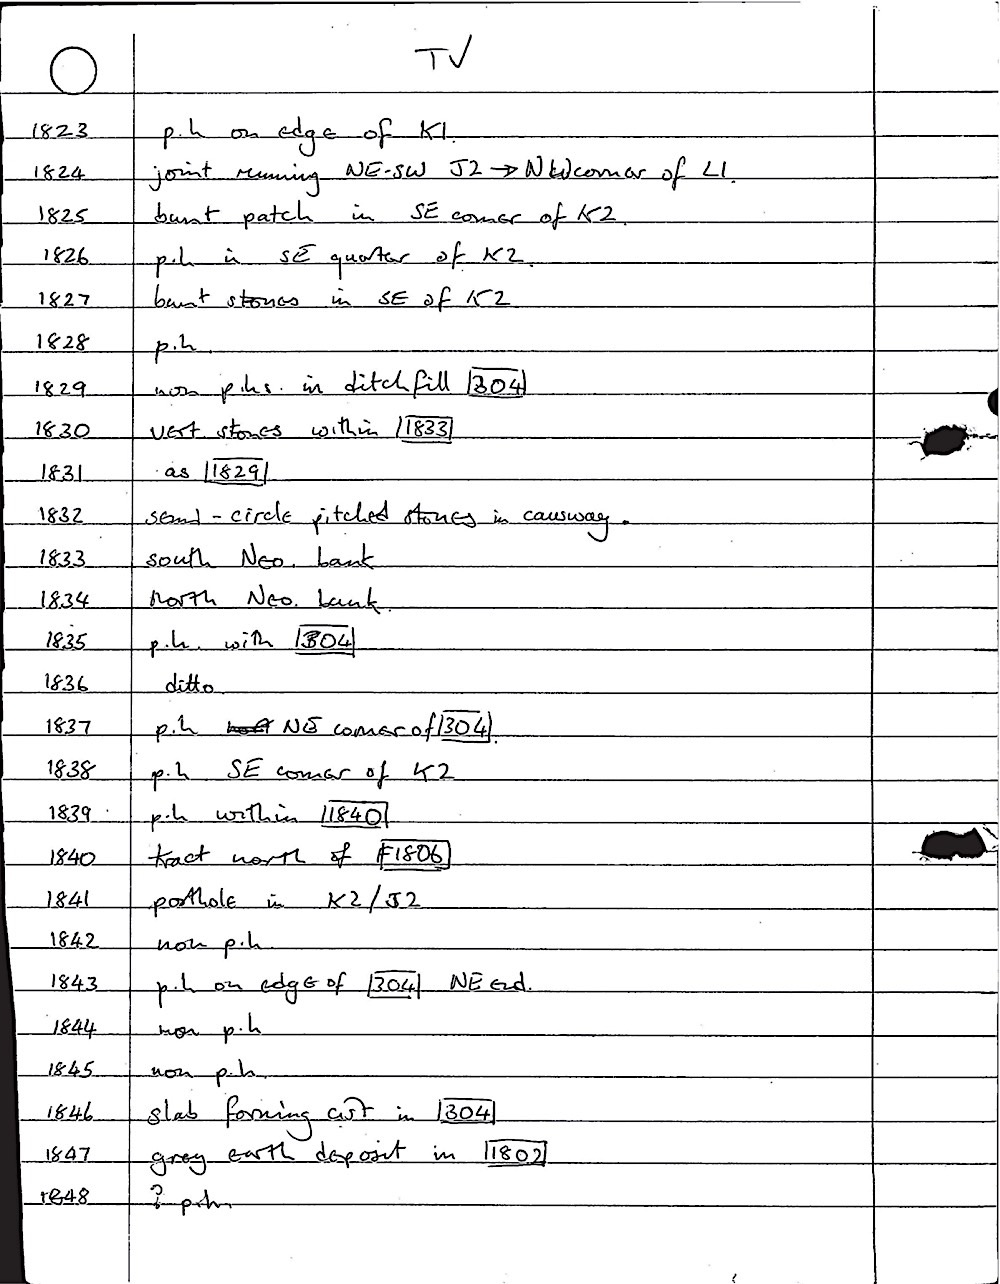 TV
1823 p.h on edge of K1.
1824 joint running NE-SW J2 → NW corner of L1.
1825 burnt patch in SE corner of K2.
1826 p.h in SE quarter of K2.
1827 burnt stones in SE of K2
1828 p.h.
1829 non p.hs. in ditch fill 304
1830 vert. stones within 1833
1831 as 1829
1832 semi-circle pitched stones in causway.
1833 south Neo. bank
1834 north Neo. bank.
1835 p.h. with 304
1836 ditto
1837 p.h NE corner of 304.
1838 p.h SE corner of K2
1839 p.h within 1840
1840 tract north of F1806
1841 posthole in K2/J2
1842 non p.h
1843 p.h on edge of 304 NE end.
1844 non p.h
1845 non p.h.
1846 slab forming cist in 304
1847 grey earth deposit in 1802
1848 ? p.h.